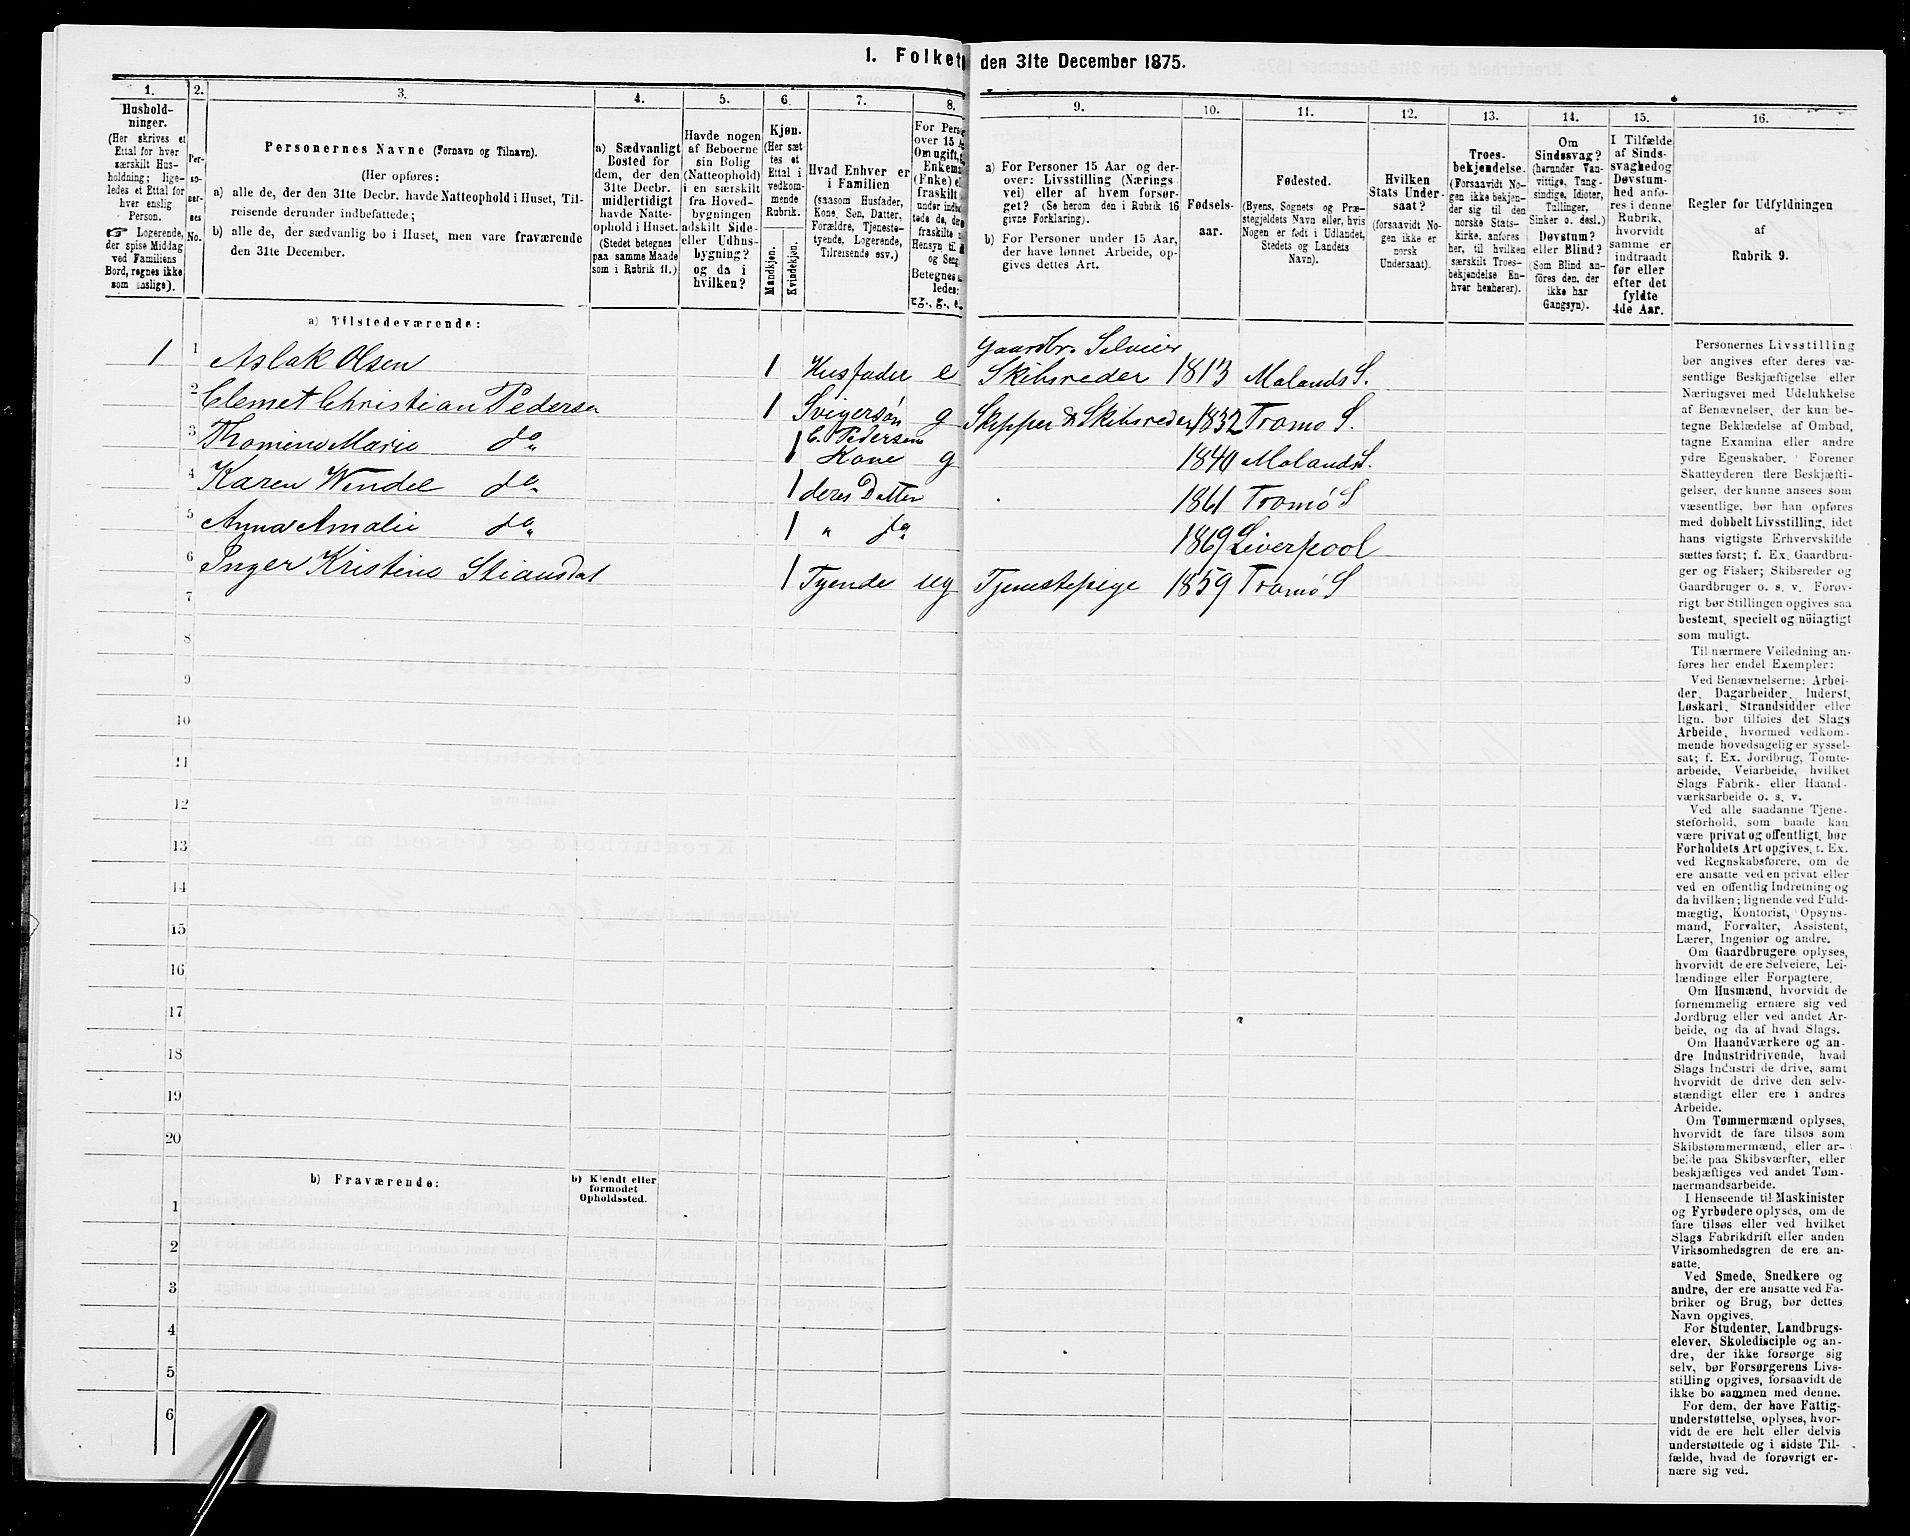 1. Folket den 31te December 1875.
1. 2. 3. 4. 5. 6. 7. 8. 9. 10. 11. 12. 13. 14. 15. 16.
Hushold-
ninger.
(Her skrives et
Ettal for hver
særskilt Hus-
holdning; lige-
ledes et Ettal for
hver enslig
Person.
☞ Logerende,
der spise Middag
ved Familiens
Bord, regnes ikke
som enslige).
Per-
so-
ner-
nes
No.
Personernes Navne (Fornavn og Tilnavn).
(Her opføres:
a) alle de, der den 31te Decbr. havde Natteophold i Huset, Til-
reisende derunder indbefattede;
b) alle de, der sædvanlig bo i Huset, men vare fraværende
den 31te December.
a) Sædvanligt
Bosted for
dem, der den
31te Decbr.
midlertidigt
havde Natte-
ophold i Huset.
(Stedet betegnes
paa samme Maade
som i Rubrik 11.)
Havde nogen
af Beboerne
sin Bolig
(Natteophold)
i en særskilt
fra Hoved-
bygningen
adskilt Side-
eller Udhus-
bygning?
og da i
hvilken?
Kjøn.
(Her sæt-
tes et
Ettal i
vedkom-
mende
Rubrik.
Mandkjøn.
Kvindekjøn.
Hvad Enhver er
i Familien
(saasom Husfader,
Kone, Søn, Datter,
Forældre, Tjeneste-
tyende, Logerende,
Tilreisende osv.)
For Perso
over 15 A
Om ugift,
Enkema
(Enke) el
fraskilt
under indbe
tede de, der
fraskilte
Hensyn til
og Seng.
Betegnes
ledes:
ug., g., e.
a) For Personer 15 Aar og der-
over: Livsstilling (Nærings-
vei) eller af hvem forsør-
get? (Se herom den i Rubrik 16
givne Forklaring).
b) For Personer under 15 Aar,
der have lønnet Arbeide, op-
gives dettes Art.
Fødsels-
aar.
Fødested.
(Byens, Sognets og Præ-
stegjeldets Navn eller, hvis
Nogen er født i Udlandet,
Stedets og Landets
Navn).
Hvilken
Stats Under-
saat?
(forsaavidt No-
gen ikke er
norsk
Undersaat).
Troes-
bekjendelse.
(Forsaavidt No-
gen ikke bekjen-
der sig til den
norske Stats-
kirke, anføres
her, til hvilken
særskilt Troes-
bekjendelse En-
hver henhører).
Om
Sindssvag?
(herunder Van-
vittige, Tung-
sindige, Idioter,
Tullinger,
Sinker o. desl.)
Døvstum?
eller Blind?
(Som Blind an-
føres den, der
ikke har
Gangsyn).
I Tilfælde
af Sinds-
svaghed og
Døvstum-
hed anfø-
res i denne
Rubrik,
hvorvidt
samme er
indtraadt
før eller
efter det
fyldte
4de Aar.
Regler for Udfyldningen
af
Rubrik 9.
a) Tilstedeværende:
Gaardbr. Selveier
1 1 Aslak Olsen 1 Husfader e Skibsreder 1813 Molands S.
2 Clemet Christian Pedersen 1 Svigersøn g Skipper & Skibsreder 1832 Tromø S.
3 Thomine Marie do 1 C. Pedersen
Kone g 1840 Molands S.
4 Karen Wendel do 1 deres Datter 1861 Tromø S
5 Anna Amalie do 1 " do 1869 Liverpool
6 Inger Kristine Stiansdat 1 Tyende ug Tjenestepige 1859 Tromø S
7
8
9
10
11
12
13
14
15
16
17
18
19
20
b) Fraværende:
b) Kjendt eller
formodet
Opholdssted.
1
2
3
4
5
6
Personernes Livsstilling
bør angives efter deres væ-
sentlige Beskjæftigelse eller
Næringsvei med Udelukkelse
af Benævnelser, der kun be-
tegne Beklædelse af Ombud,
tagne Examina eller andre
ydre Egenskaber. Forener
Skatteyderen flere Beskjæfti-
gelser, der kunne ansees som
væsentlige, bør han opføres
med dobbelt Livsstilling, idet
hans vigtigste Erhvervskilde
sættes først; f. Ex. Gaardbru-
ger og Fisker; Skibsreder og
Gaardbruger o. s. v. Forøv-
rigt bør Stillingen opgives saa
bestemt, specielt og nøiagtigt
som muligt.
Til nærmere Veiledning an-
føres her endel Exempler:
Ved Benævnelserne: Arbei-
der, Dagarbeider, Inderst,
Løskarl, Strandsidder eller
lign. bør tilføies det Slags
Arbeide, hvormed vedkom-
mende hovedsagelig er syssel-
sat; f. Ex. Jordbrug, Tomte-
arbeide, Veiarbeide, hvilket
Slags Fabrik- eller Haand-
værksarbeide o. s. v.
Ved alle saadanne Tjene-
steforhold, som baade kan
være privat og offentligt, bør
Forholdets Art opgives, f. Ex.
ved Regnskabsførere, om de
ere ansatte ved en privat eller
ved en offentlig Indretning og
da hvilken; lignende ved Fuld-
mægtig, Kontorist, Opsyns-
mand, Forvalter, Assistent,
Lærer, Ingeniør og andre.
Om Gaardbrugere oplyses,
hvorvidt de ere Selveiere, Lei-
lændinge eller Forpagtere.
Om Husmænd, hvorvidt de
fornemmelig ernære sig ved
Jordbrug eller ved andet Ar-
beide, og da af hvad Slags.
Om Haandværkere og an-
dre Industridrivende, hvad
Slags Industri de drive, samt
hvorvidt de drive den selv-
stændigt eller ere i andres
Arbeide.
Om Tømmermænd oplyses,
hvorvidt de fare tilsøs som
Skibstømmermænd, eller ar-
beide paa Skibsværfter, eller
beskjæftiges ved andet Tøm-
mermandsarbeide.
I Henseende til Maskinister
og Fyrbødere oplyses, om de
fare tilsøs eller ved hvilket
Slags Fabrikdrift eller anden
Virksomhedsgren de ere an-
satte.
Ved Smede, Snedkere og
andre, der ere ansatte ved Fa-
briker og Brug, bør dettes
Navn opgives.
For Studenter, Landbrugs-
elever, Skoledisciple og an-
dre, der ikke forsørge sig
selv, bør Forsørgerens Livs-
stilling opgives, forsaavidt de
ikke bo sammen med denne.
For dem, der have Fattig-
understøttelse, oplyses, hvor-
vidt de ere helt eller delvis
understøttede og i sidste Til-
fælde, hvad de forøvrigt er-
nære sig ved.